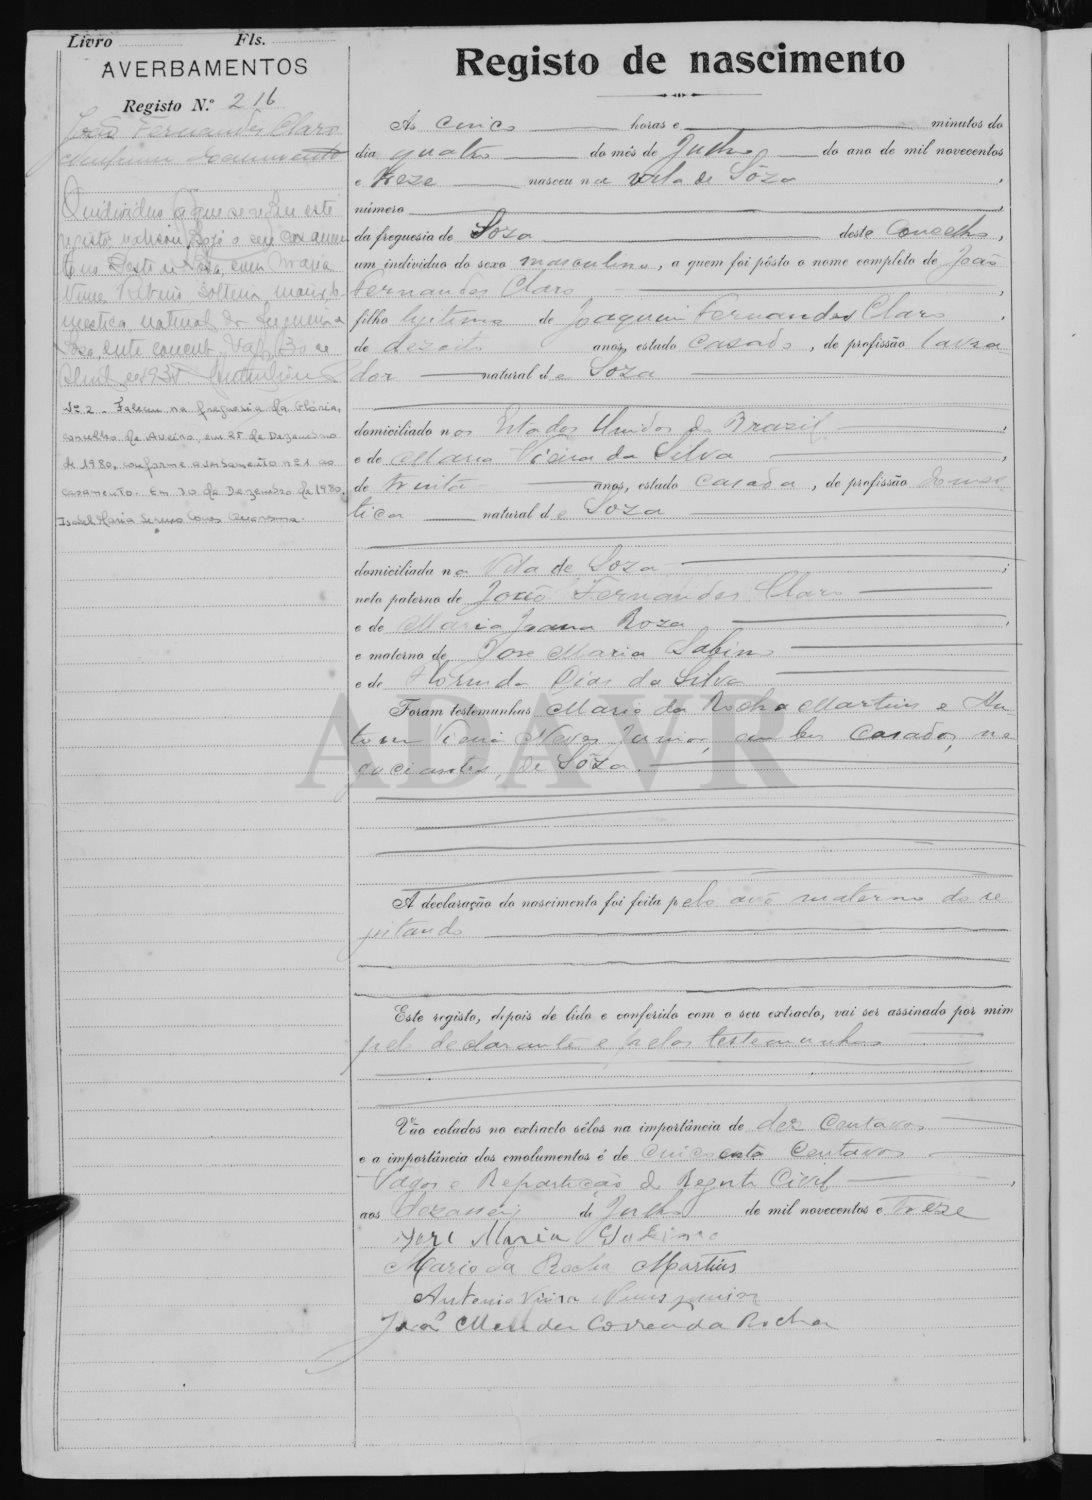 Livro Fls.
AVERBAMENTOS
Registo N.º 216
João Fernandes Claro
O individuo a que se refere este
registo realisou hoje o seu casamen
to no Posto de Soza, com Maria
Nunes solteira, maior, do
mestica natural da freguesia de
Soza, deste concelho. 30 de
Abril de 193
Nº 2 - Faleceu na freguesia da Glória,
concelho de Aveiro, em 25 de Dezembro
de 1980, conforme averbamento nº 1 ao
casamento. Em 30 de Dezembro de 1980.
Isabel Maria
Registo de nascimento
Ás cinco horas e minutos do
dia quatro do mês de Julho do ano de mil novecentos
e treze nasceu na vila de Sôza,
número ,
da freguesia de Soza deste Concelho,
um individuo do sexo masculino, a quem foi pôsto o nome completo de João
Fernandes Claro ,
filho legitimo de Joaquim Fernandes Claro ,
de dezoito anos, estado casado, de profissão lavra
dor natural de Soza
domiciliado nos Estados Unidos do Brazil ,
e de Maria Vieira da Silva ,
de trinta anos, estado casada, de profissão domes
tica natural de Soza
domiciliada na Vila de Soza ;
neto paterno de João Fernandes Claro
e de Maria Joana Roza ,
e materno de José Maria Sabino
e de Florinda Dias da Silva
Foram testemunhas Mario da Rocha Martins e An-
tonio Vieira Neves Junior, ambos casados, ne
gociantes, de Sôza.
ADAVR
A declaração do nascimento foi feita pelo avô materno do re
gistando
Este registo, depois de lido e conferido com o seu extracto, vai ser assinado por mim
pelo declarante e pelas testemunhas
Vão colados no extracto sêlos na importância de dez centavos
e a importância dos emolumentos é de cincoenta centavos
Vagos e Repartição do Registo Civil ,
aos dezasseis de Julho de mil novecentos e treze
José Maria Sabino
Mario da Rocha Martins
Antonio Vieira Junior
João Mendes Correa da Rocha